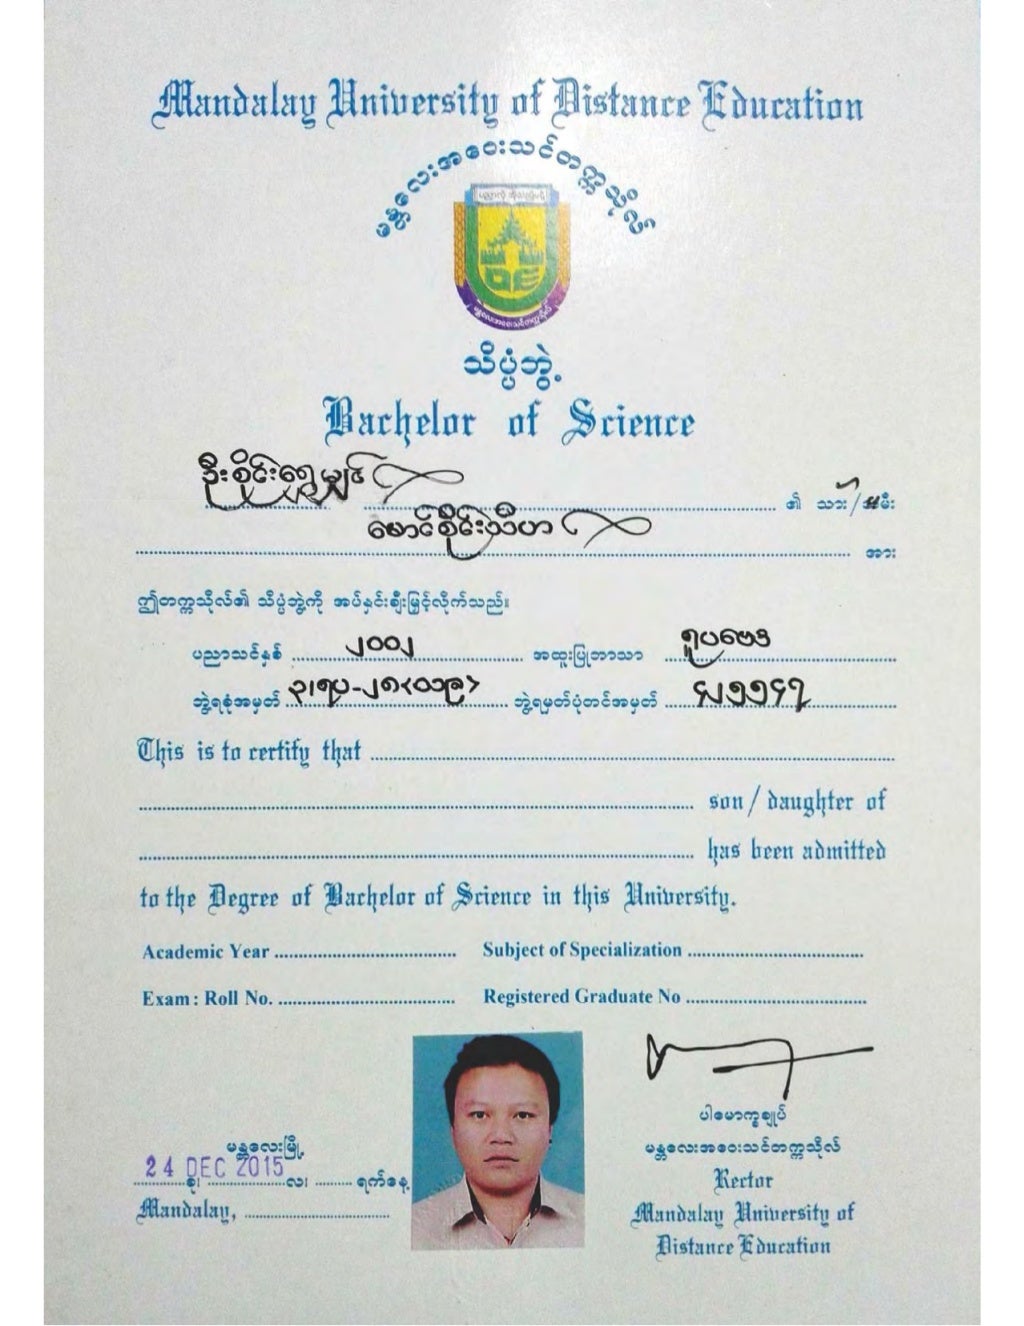 Mandalay University of Distance Education
မန္တလေးအဝေးသင်တက္ကသိုလ်
မန္တလေးအဝေးသင်တက္ကသိုလ်
သိပ္ပံဘွဲ့
Bachelor of Science
ဦးစိုင်းရွှေမျှင် ၏ သား/သမီး
မောင်စိုင်းသီဟ အား
ဤတက္ကသိုလ်၏ သိပ္ပံဘွဲ့ကို အပ်နှင်းချီးမြှင့်လိုက်သည်။
ပညာသင်နှစ် ၂၀၀၂ အထူးပြုဘာသာ ရူပဗေဒ
ဘွဲ့ရခုံအမှတ် ဘွဲ့ရမှတ်ပုံတင်အမှတ်
This is to certify that
son / daughter of
has been admitted
to the Degree of Bachelor of Science in this University.
Academic Year Subject of Specialization
Exam : Roll No. Registered Graduate No
ပါမောက္ခချုပ်
မန္တလေးမြို့ မန္တလေးအဝေးသင်တက္ကသိုလ်
24 DEC 2015
ခု၊ လ၊ ရက်နေ့
Rector
Mandalay, Mandalay University of
Distance Education